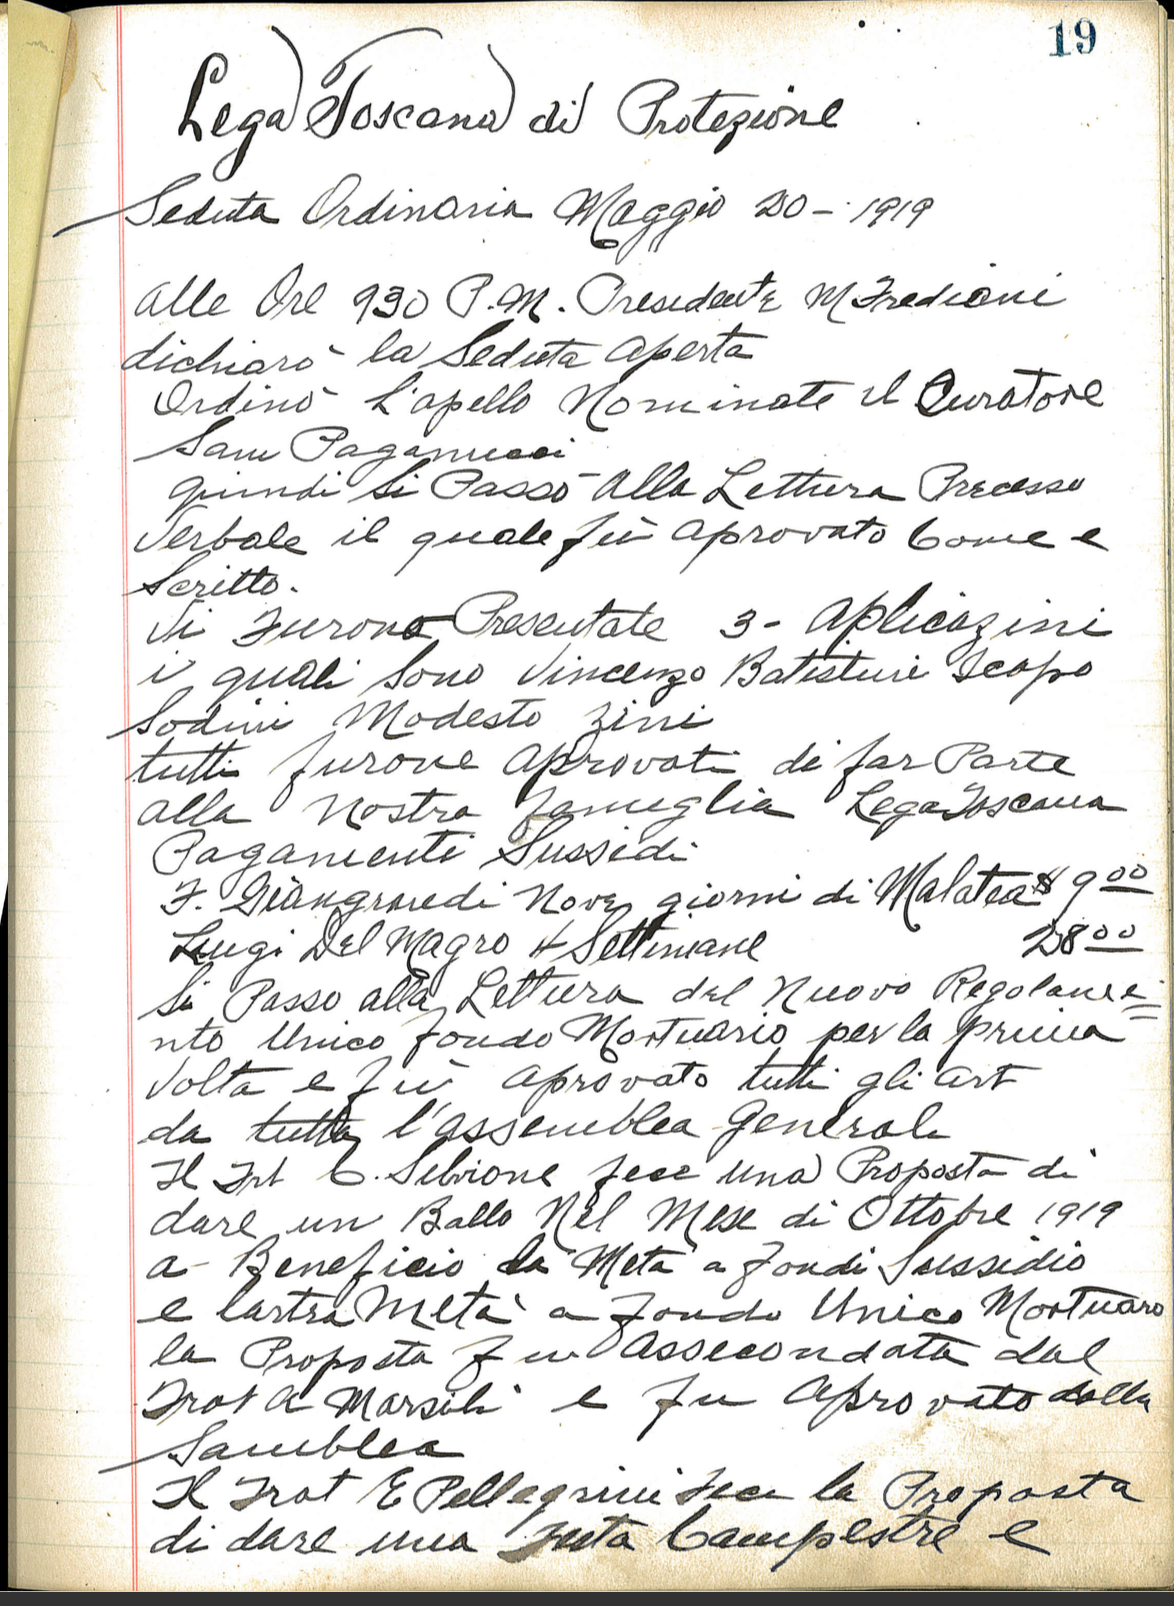 19
Lega Toscana di Protezione
Seduta Ordinaria Maggio 20 - 1919
alle Ore 930 P.M. Presidente M Fredioni
dichiarò la Seduta aperta
Ordinò L'apello Nominate il Curatore
Sam Paganucci
quindi Si Passò alla Lettura Precesso
Verbale il quale fù aprovato Come e
Scritto.
Vi Furono Presentate 3 - aplicazini
i quali Sono Vincenzo Batistini
Sodini Modesto Zini
tutti furone aprovati di far Parte
alla Nostra fameglia Lega Toscana
Pagamenti Sussidi
F. Giangrandi Nove giorni di Malatea $ 9 00
Luigi Del Magro 4 Settimane 28 00
Si Passo alla Lettura del Nuovo Regolame=
nto Unico fondo Mortuario per la prima
Volta e fù aprovato tutti gli art
da tutta l'assemblea Generale
Il Frt C. fece una Proposta di
dare un Ballo Nel Mese di Ottobre 1919
a Beneficio la Metà a fondi Sussidio
e lartra Metà a fondo Unico Mortuaro
la Proposta fu assecondata dal
Frat A Marsili e fu aprovato dalla
Samblea
Il Frat E Pellegrini fece la Proposta
di dare una festa Campestre e